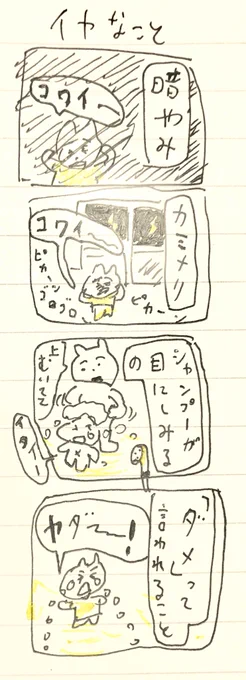 イヤなこと
暗やみ
コワイー
カミナリ
コワイー
ピカッ
ゴロ
ゴロ
ピカーン
シャンプーが
目にしみる
の
上
むいてて
イタイー
「ダメ」って
言われること
ヤダー!